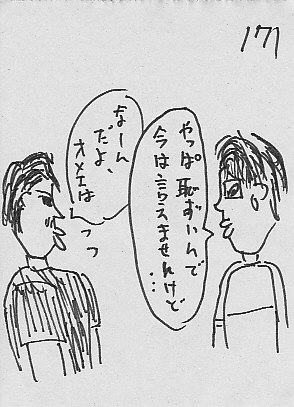 171
やっぱ恥ずいんで
今は言らえませんけど
…
なーん
だよ、
オメエは
っっ